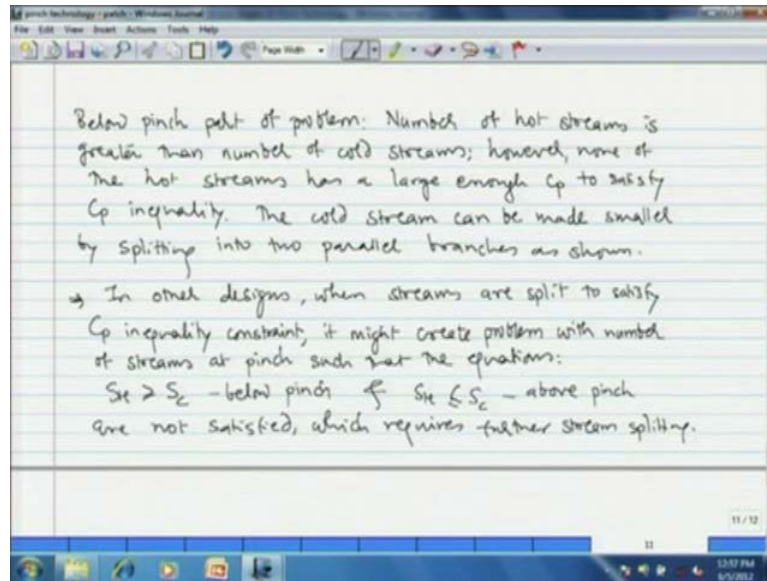 pinch technology - patch - Windows Journal
File Edit View Insert Actions Tools Help
Page Width
Below pinch part of problem: Number of hot streams is
greater than number of cold streams; however, none of
the hot streams has a large enough Cp to satisfy
Cp inequality. The cold stream can be made smaller
by splitting into two parallel branches as shown.
→ In other designs, when streams are split to satisfy
Cp inequality constraint, it might create problem with number
of streams at pinch such that the equations:
SH ≥ Sc - below pinch & SH ≤ Sc - above pinch
are not satisfied, which requires further stream splitting.
11 / 12
11
12:57 PM
6/5/2012